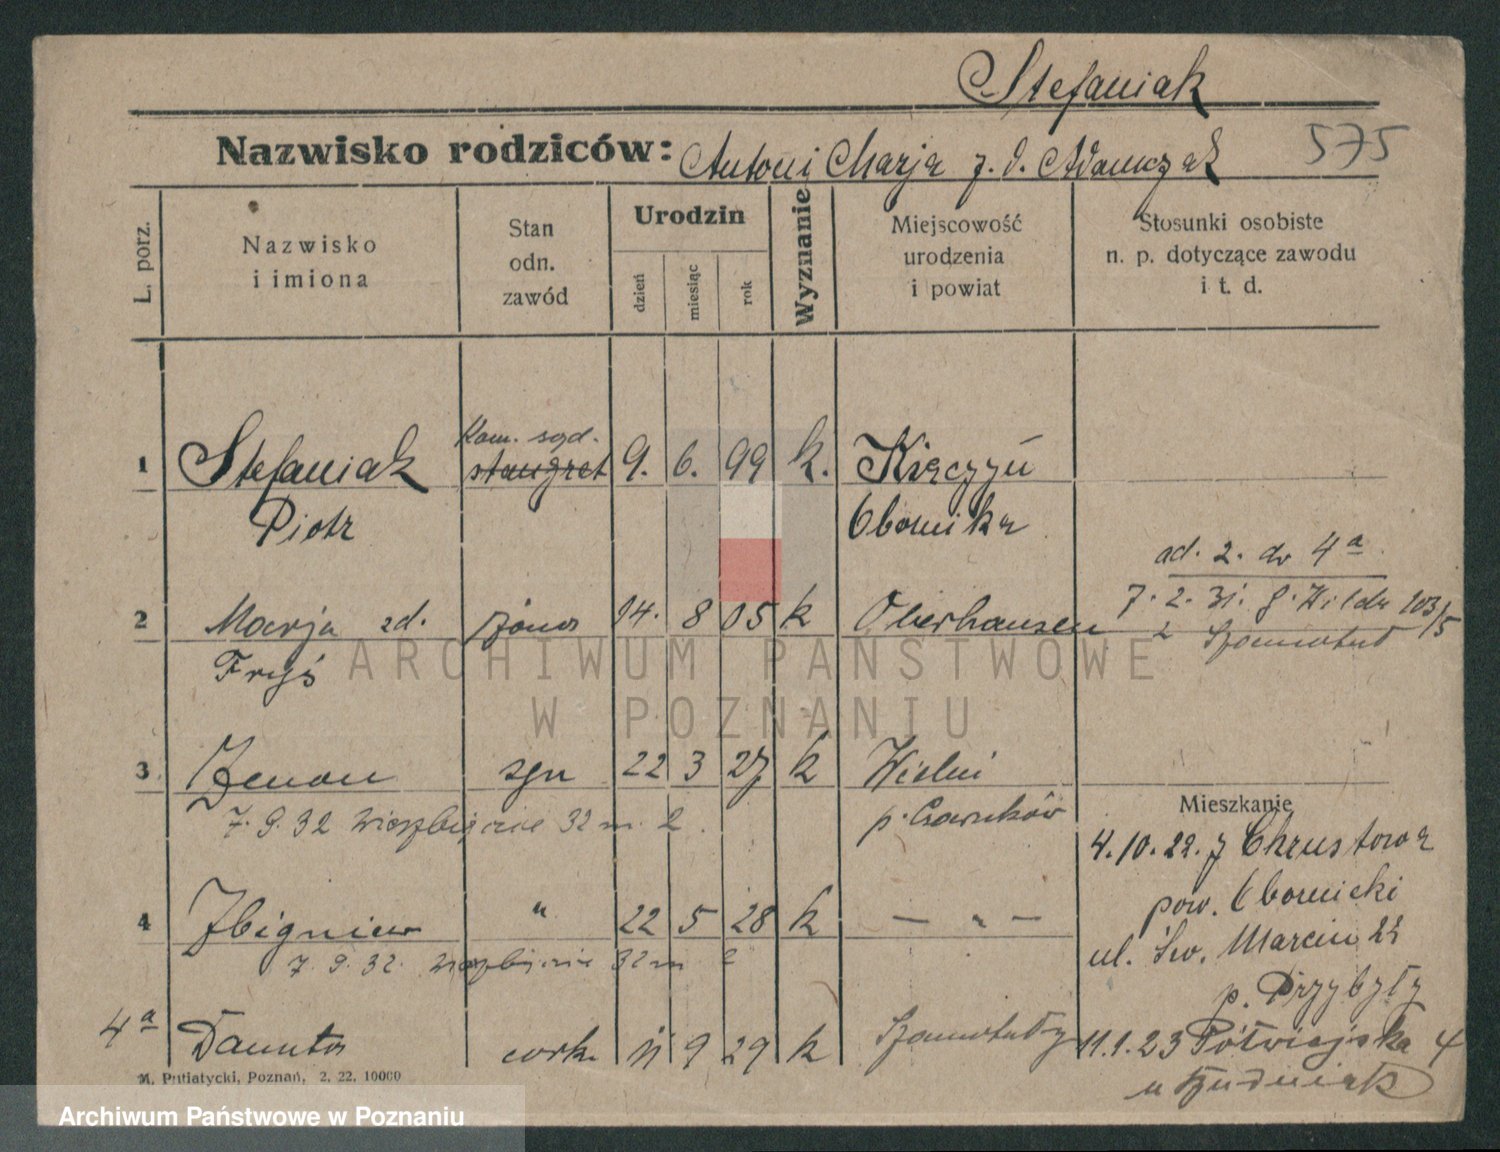 Stefaniak
Nazwisko rodziców: Antoni Marja z. d. Adamczak 575
L. porz.
Nazwisko
i imiona
Stan
odn.
zawód
Urodzin
dzień
miesiąc
rok
Wyznanie
Miejscowość
urodzenia
i powiat
Stosunki osobiste
n. p. dotyczące zawodu
i t. d.
Kom. sąd.
1 Stefaniak stangret 9. 6. 99 k.
Piotr Obornika
ad. 2. do 4a
7. 2. 31. g. Wilda 103/5
2 Marja zd. żona 14. 8 05 k Oberhausen z Szamotuł
Fryś
3 Zenon syn 22 3 27 k Wieleń
7. 9. 32 Wierzbięcice 32 m. 2 p. Czarnków
Mieszkanie
4. 10. 22. z Chrustowa
pow. Obornicki
4 Zbigniew " 22 5 28 k — " —
7. 9. 32. Wierzbięcice 32 m 2
ul. Św. Marcin 22
p. Przybyły
4a Danuta córk. 11 9 29 k Szamotuły
11.1.23 Półwiejska 4
M. Putiatycki, Poznań, 2. 22. 10000
ARCHIWUM PAŃSTWOWE
W POZNANIU
Archiwum Państwowe w Poznaniu